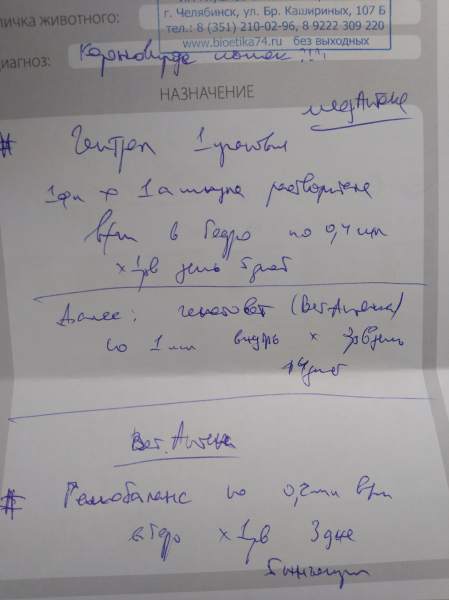 личка животного:
г. Челябинск, ул. Бр. Кашириных, 107 Б
тел.: 8 (351) 210-02-96, 8 9222 309 220
www.bioetika74.ru без выходных
диагноз: Коронавироз кошек???
НАЗНАЧЕНИЕ
мед Аптека
# Гептрал 1 упаковка
1 фл + 1 ампула растворителя
в/м в бедро по 0,4 мл
х 1 р в день 5 дней
Далее: гепатовет (Вет. Аптека)
по 1 мл внутрь х 3 р в день
14 дней
Вет. Аптека
# Гемобаланс по 0,2 мл в/м
в бедро х 1 р в 3 дня
5 инъекций